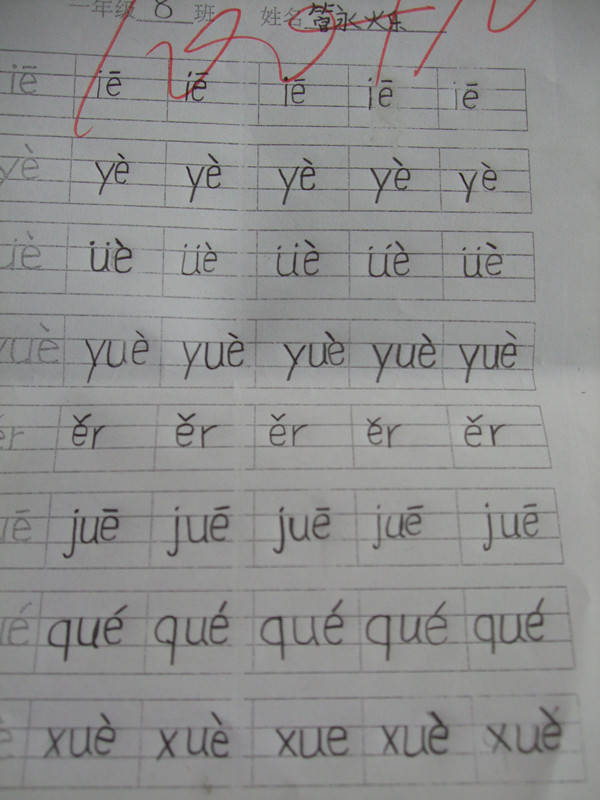 一年级 8 班 姓名 管永烁
iē iē iē iē iē iē
yè yè yè yè yè yè
üè üè üè üè üè üè
yuè yuè yuè yuè yuè yuè
ěr ěr ěr ěr ěr ěr
uē juē juē juē juē juē
ué qué qué qué qué qué
è xuè xuè xue xuè xuě